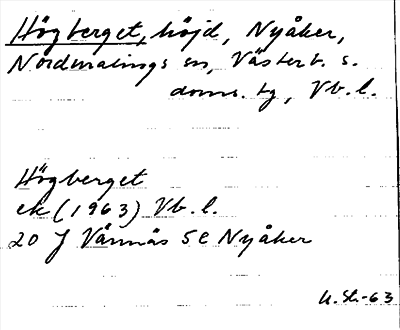 Högberget, höjd, Nyåker,
Nordmalings sn, Västerb. s.
doms. tg, Vb. l.
Högberget
ek (1963) Vb. l.
20 J Vännäs SE Nyåker
U. St.-63